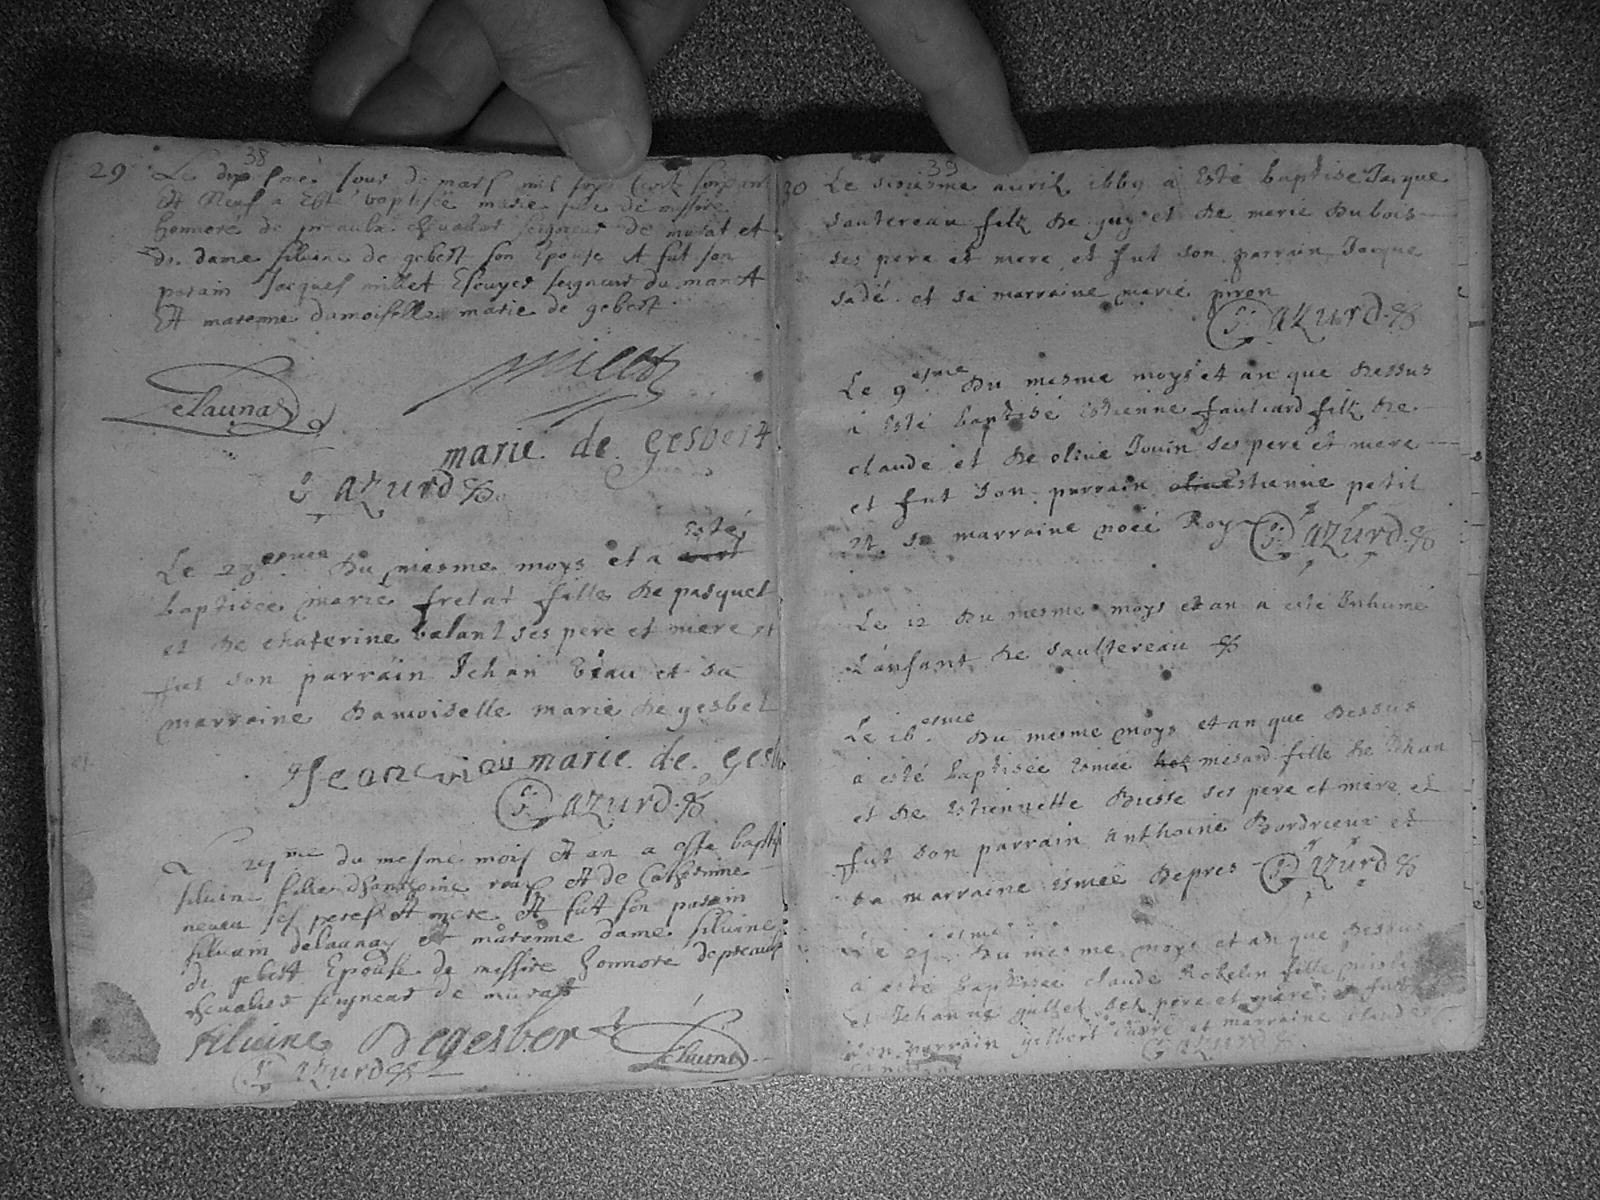 29 38
Le dix jour de mars mil six
Et Neuf a Esté baptisée marie fille de messire
honnoré de preaulx chevalier seigneur de murat et
de dame silvine de gebert son Epouse et fut son
parain Jacques millet Escuyer seigneur du
Et marenne damoiselle marie de gebert
Millet
Delaunay
marie de gesbert
azurd
esté
Le 23esme du mesme moys et a
baptisée marie fretat fille de pasquet
et de chaterine balant ses pere et mere et
fut son parrain Jehan viau et sa
marraine damoiselle marie de gesbet
Jean viau marie de gesb
azurd
du mesme mois et an a este bapti
silvine fille roux et de Catherine
neveu ses peres et mere et fut son parain
silvain delaunay et marenne dame silvine
de gebert Epouse de messire honnore depreaux
chevalier seigneur de murat
silvine Degesbert Delaunay
azurd
39
30 Le sixiesme avril 1669 a esté baptisé Jacque
sautereau filz de guy et de marie dubois
ses pere et mere et fut son parrain Jacque
sadé et sa marraine marie piron
azurd
Le 9esme du mesme moys et an que dessus
a esté baptisé estienne fautard filz de
claude et de olive Jouin ses pere et mere
et fut son parrain estienne petit
et sa marraine Roy azurd
Le 12 du mesme moys et an a esté Inhumé
L'anfant de saultereau
Le 16esme du mesme moys et an que dessus
a esté baptisée esmée mesard fille de Jehan
et de estiennette Busse ses pere et mere et
fut son parrain anthoine Bordrieux et
sa marraine esmée depres azurd
Le du mesme moys et an que dessus
a esté baptisée claude Robelin fille
et Jehanne guillet ses pere et mere et fut
son parrain gilbert et marraine claude
azurd